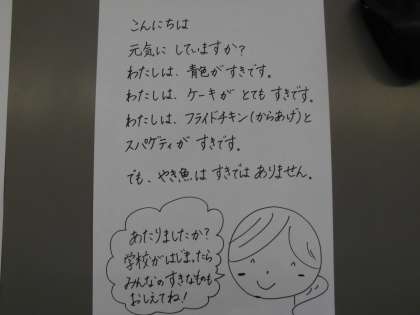 こんにちは
元気に していますか？
わたしは、青色が すきです。
わたしは、ケーキが とても すきです。
わたしは、フライドチキン(からあげ)と
スパゲティが すきです。
でも、やき魚は すきでは ありません。
あたりましたか？
学校がはじまったら
みんなの すきなものも
おしえてね！